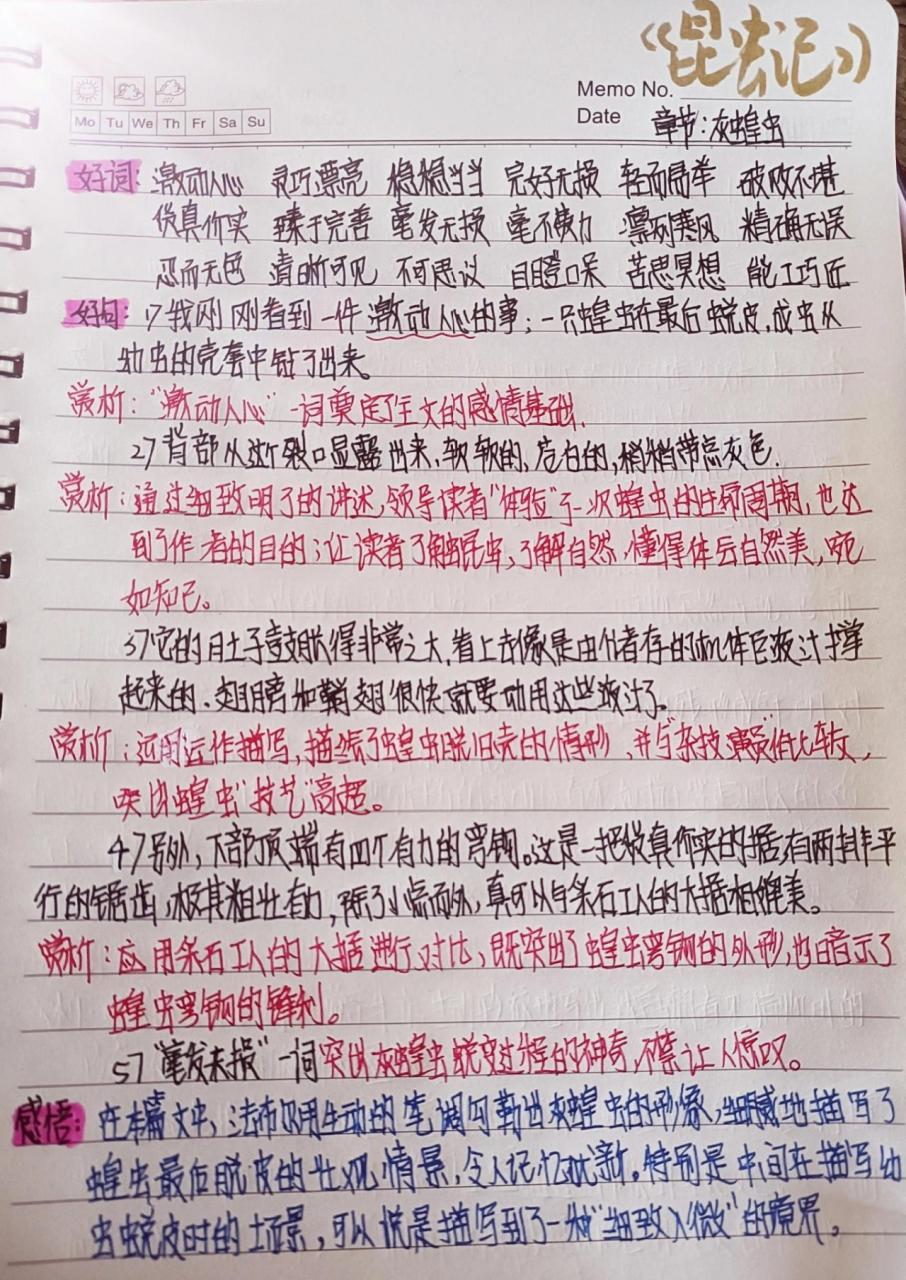 《昆虫记》
Memo No.
Mo Tu We Th Fr Sa Su
Date 章节：灰蝗虫
好词：激动人心 灵巧漂亮 稳稳当当 完好无损 轻而易举 破败不堪
货真价实 臻于完善 毫发无损 毫不费力 凛冽寒风 精确无误
忍而无色 清晰可见 不可思议 目瞪口呆 苦思冥想 能工巧匠
好句：1>我刚刚看到一件激动人心的事；一只蝗虫在最后蜕皮，成虫从
幼虫的壳套中钻了出来。
赏析：“激动人心”一词奠定了全文的感情基础．
2>背部从这个裂口显露出来，软软的，苍白的，稍稍带点灰色．
赏析：通过细致明了的讲述，领导读者“体验”了一次蝗虫的生命周期，也达
到了作者的目的；让读者了解昆虫，了解自然，懂得体会自然美，宛
如知己。
3>它的肚子鼓胀得非常之大，看上去像是由储存的机体的液汁撑
起来的，翅膀和鞘翅很快就要动用这些液汁了。
赏析：运用动作描写，描绘了蝗虫脱旧壳的情形，并与杂技演员作比较，
突出蝗虫“技艺”高超。
4>另外，下部顶端有四个有力的弯钩。这是一把货真价实的锯，有两排平
行的锯齿，极其粗壮有力，除了小点而外，真可以与条石工人的大锯相媲美。
赏析：应用条石工人的大锯进行对比，既突出了蝗虫弯钩的外形，也暗示了
蝗虫弯钩的锋利。
5>“毫发未损”一词突出灰蝗虫蜕变过程的神奇，不禁让人惊叹。
感悟：在本篇文中，法布尔用生动的笔调勾勒出灰蝗虫的形像，细腻地描写了
蝗虫最后脱皮的壮观情景，令人记忆犹新。特别是中间在描写幼
虫蜕皮时的场景，可以说是描写到了一种“细致入微”的境界。